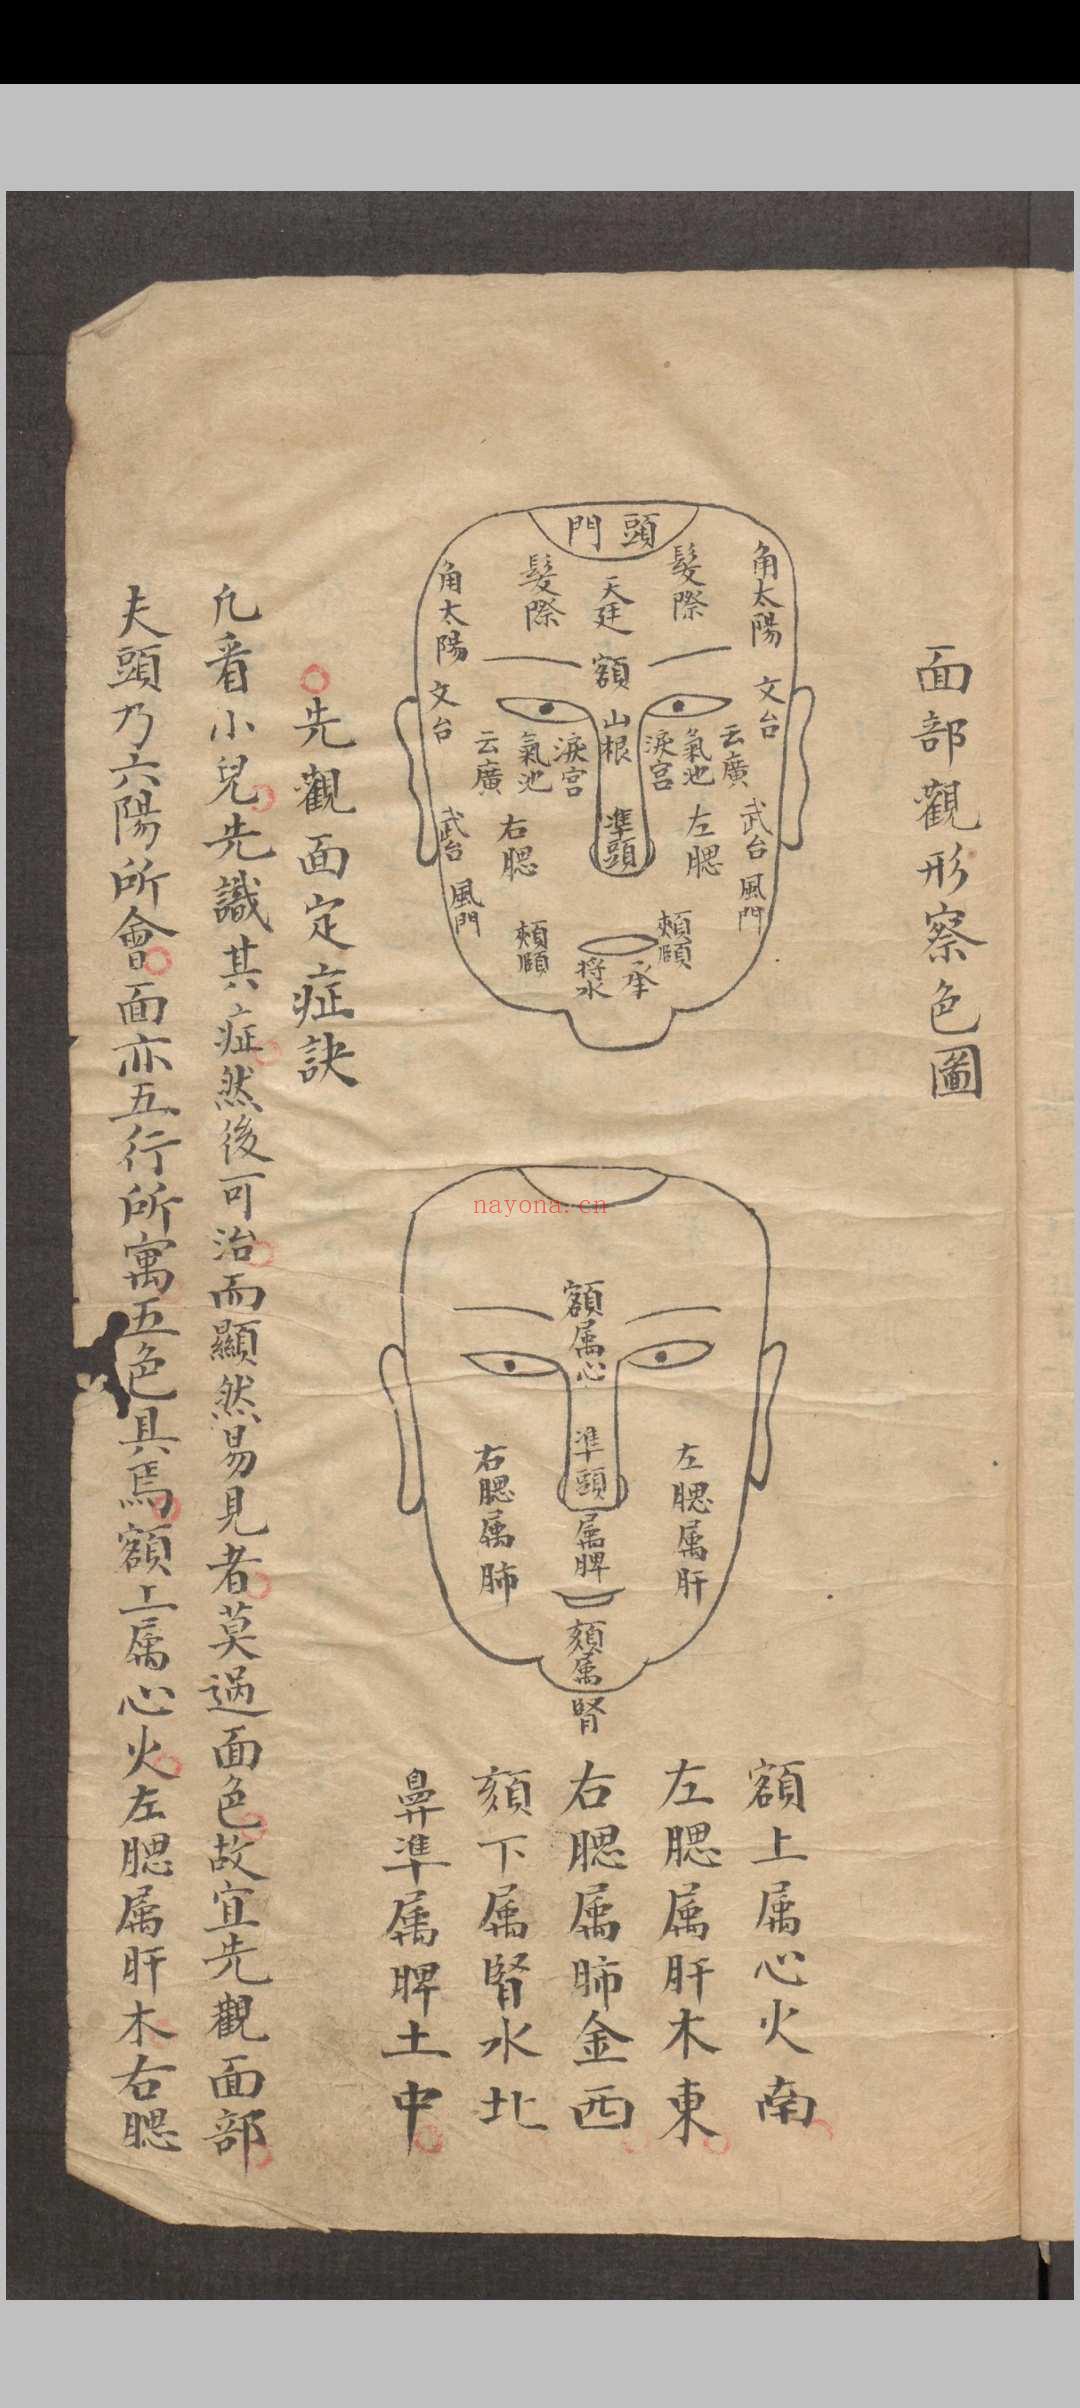 面部觀形察色圖
頭門
髮際
髮際
天廷
角太陽
角太陽
額
文台
文台
山根
淚宮
淚宮
氣池
氣池
云廣
云廣
準頭
左腮
右腮
武台
武台
風門
風門
頰頤
頰頤
承
將水
額属心
準頭属脾
左腮属肝
右腮属肺
頦属腎
nayona.cn
額上属心火南
左腮属肝木東
右腮属肺金西
頦下属腎水北
鼻準属脾土中
先觀面定症訣
凡看小兒先識其症然後可治而顯然易見者莫過面色故宜先觀面部
夫頭乃六陽所會面亦五行所寓五色具焉額上属心火左腮属肝木右腮